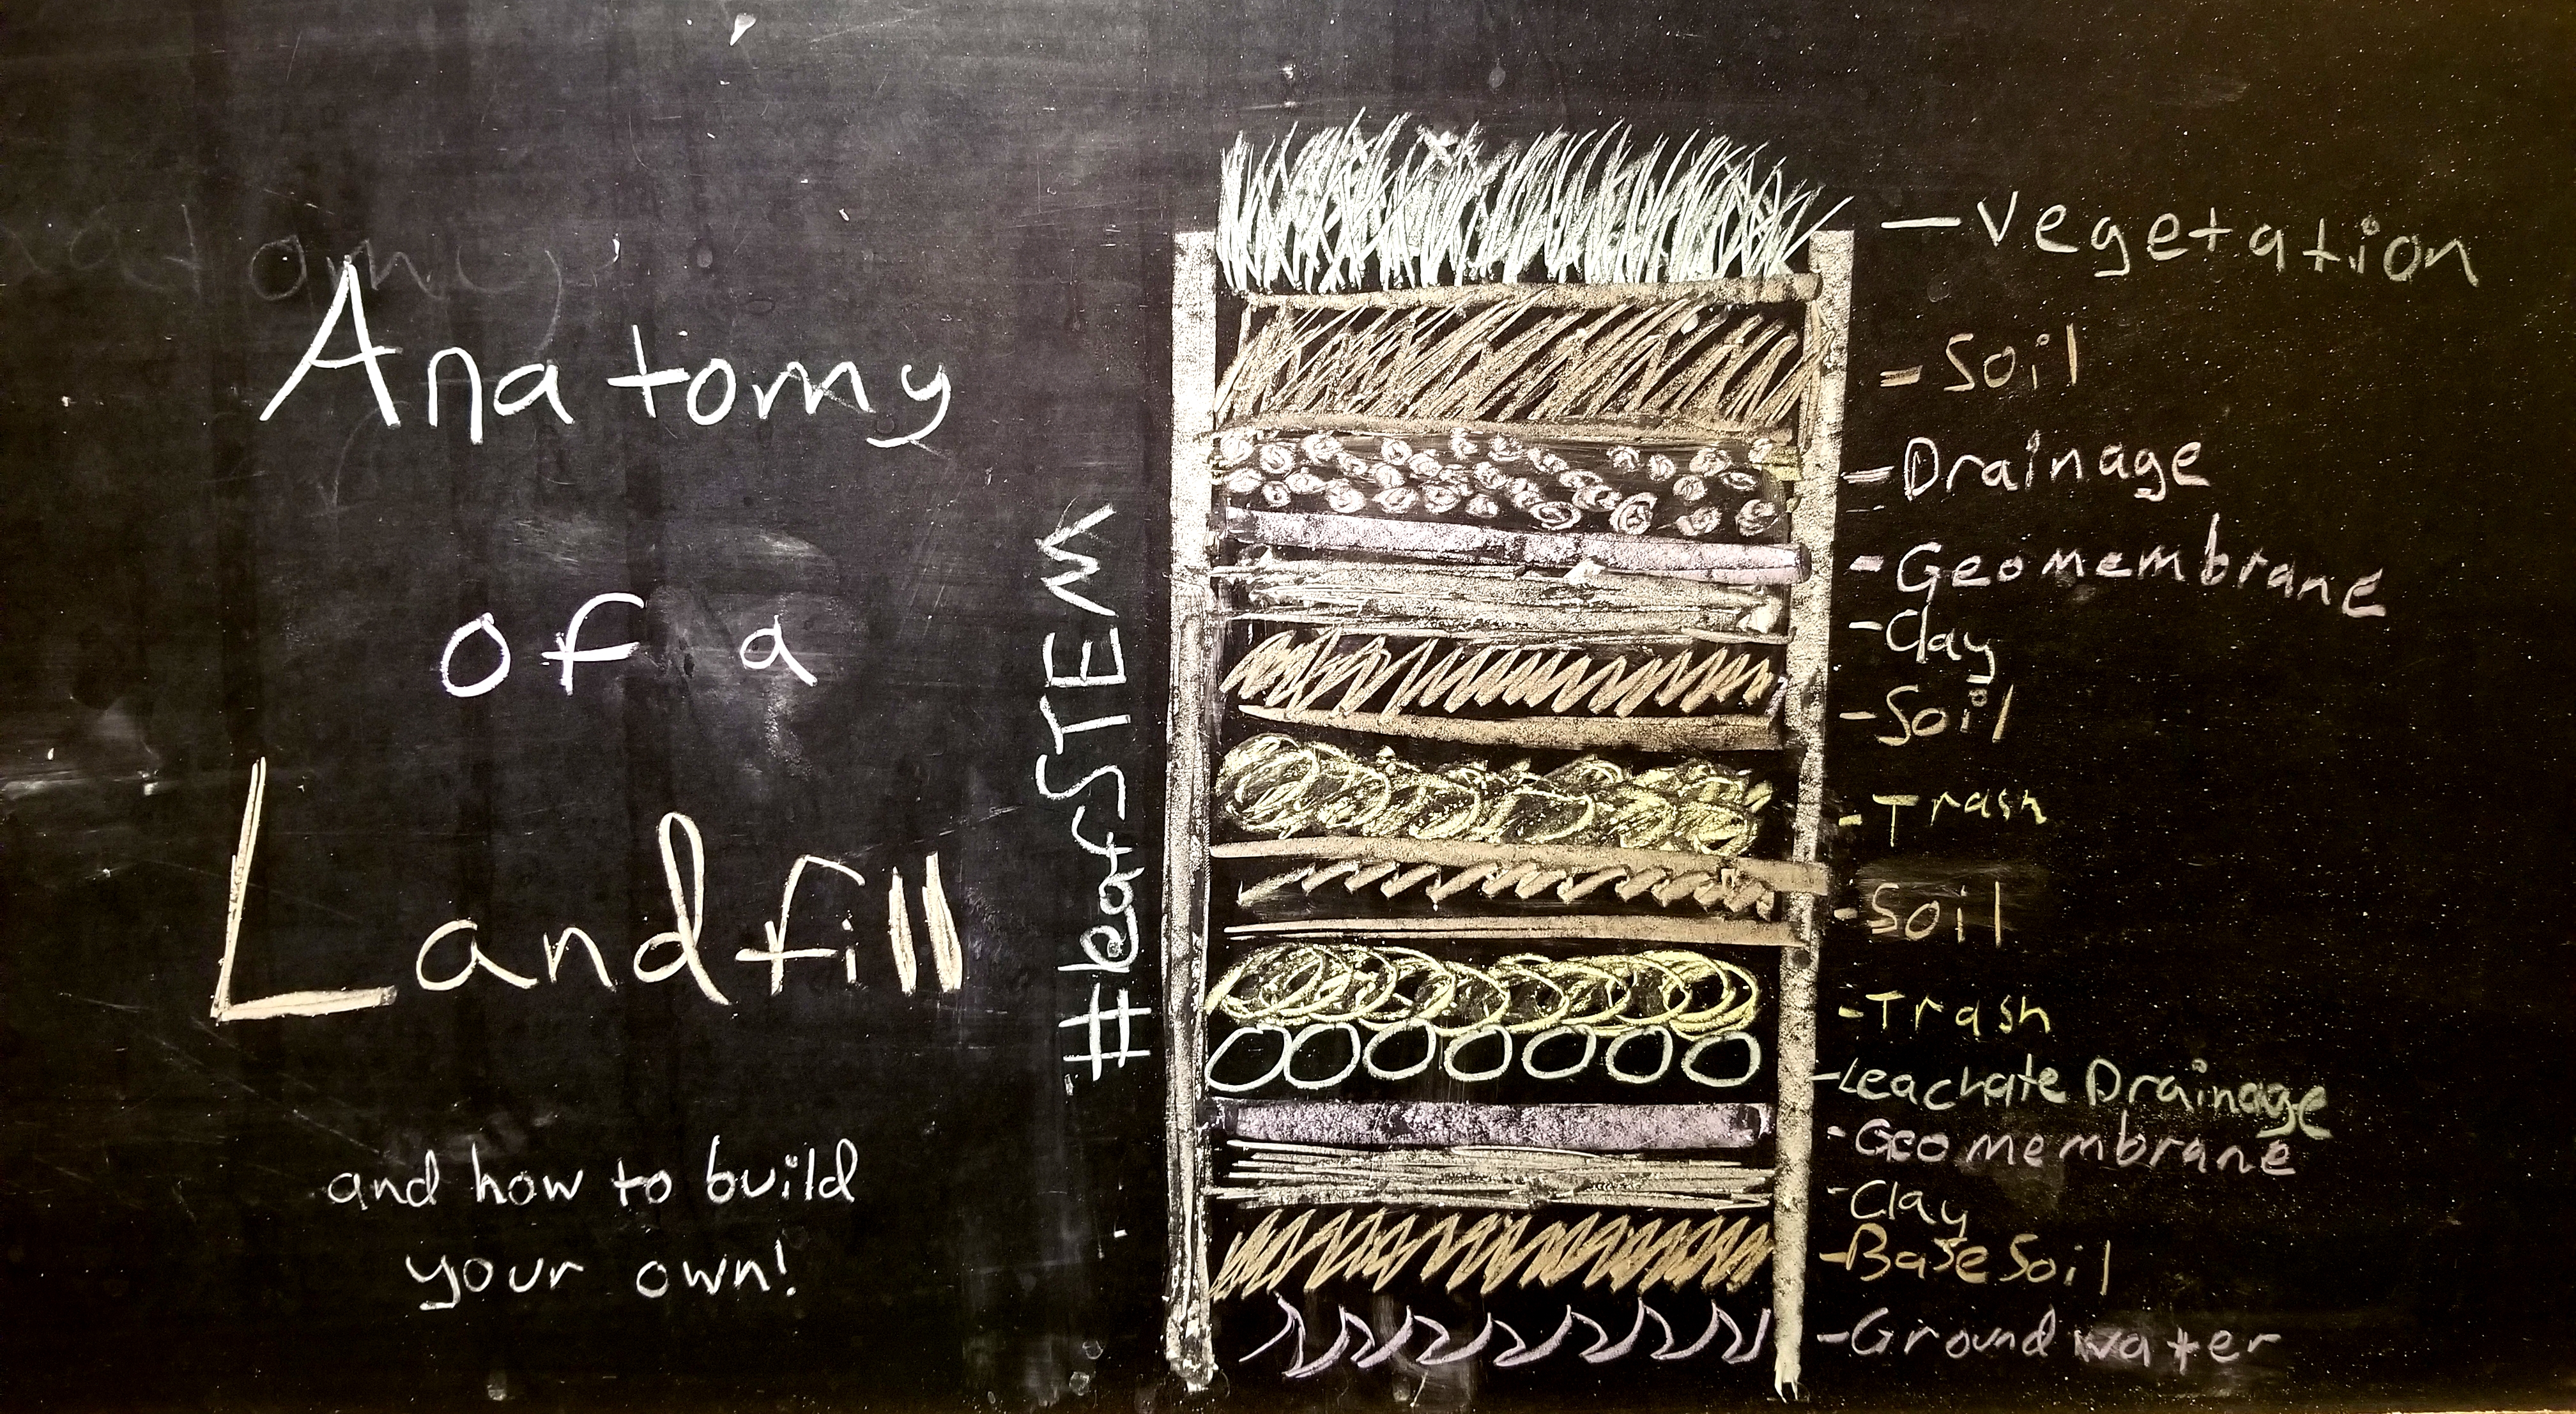 Anatomy
of a
Landfill
and how to build
your own!
#leafSTEM
- Vegetation
- Soil
- Drainage
- Geomembrane
- Clay
- Soil
- Trash
- Soil
- Trash
- Leachate Drainage
- Geomembrane
- Clay
- Base Soil
- Ground water